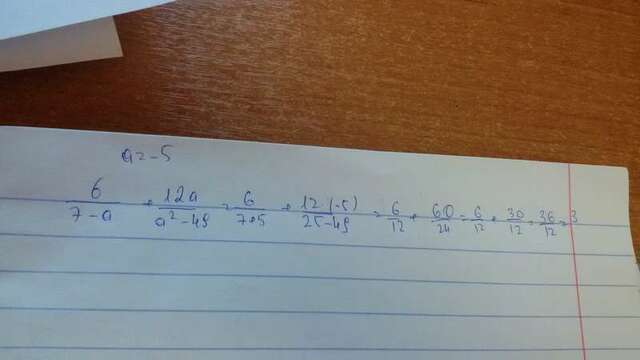 a=-5
6/(7-a) + 12a/(a²-49) = 6/(7+5) + 12·(-5)/(25-49) = 6/12 + 60/24 = 6/12 + 30/12 = 36/12 = 3